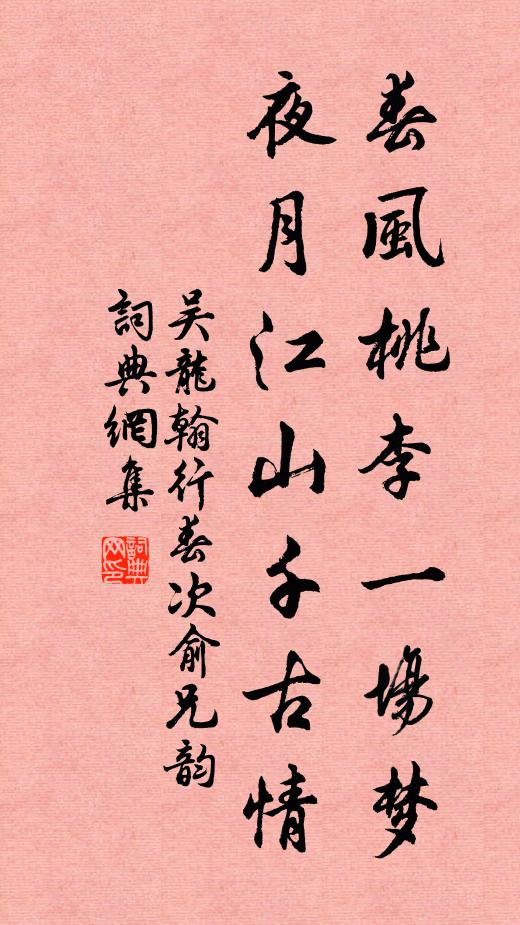 春風桃李一場梦
夜月江山千古情
吴龍翰行春次俞兄韵
詞典網集
詞典网印